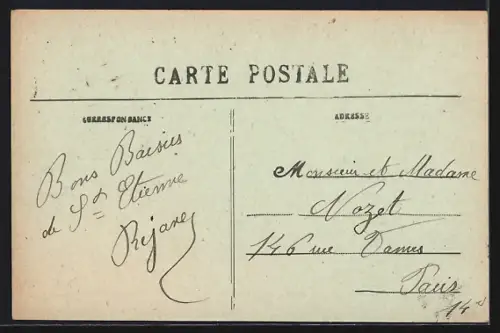 CARTE POSTALE
CORRESPONDANCE
ADRESSE
Bons Baisers
de St Etienne
Réjane
Monsieur et Madame
Nozet
146 rue
Paris
14e